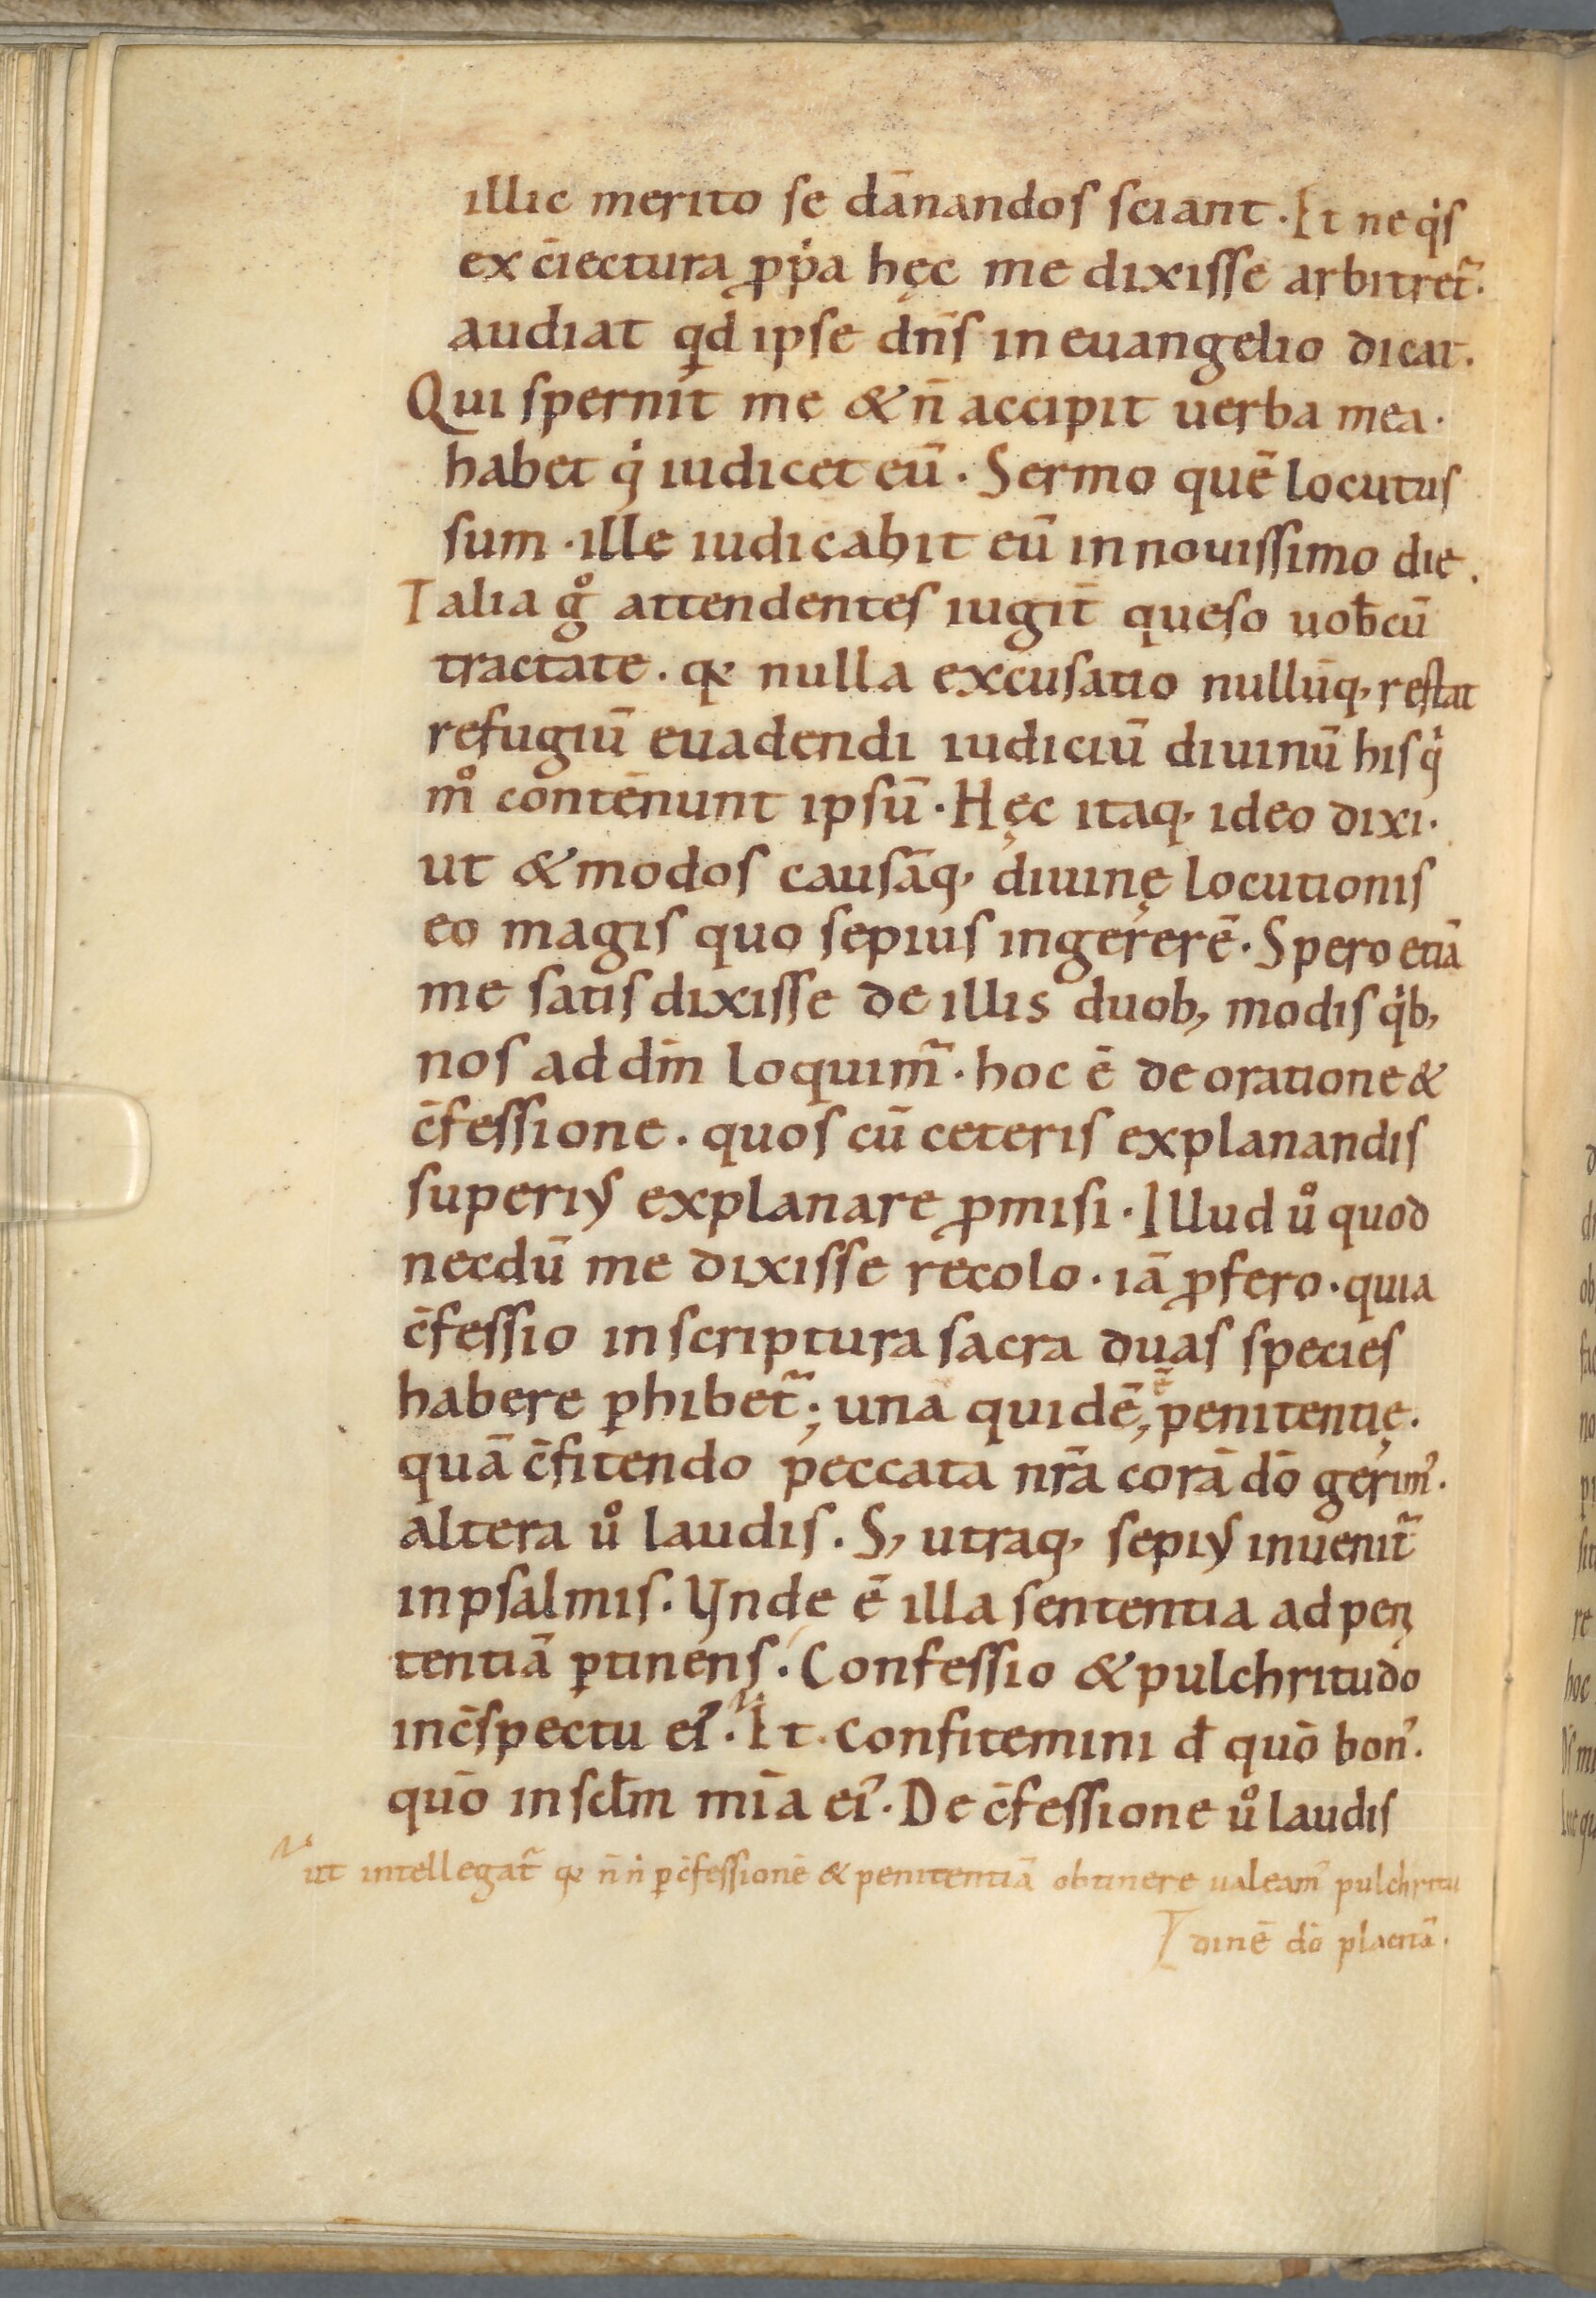 illic merito se dānandos sciant. Et ne qͥs
ex c̄iectura ꝓpͥa hęc me dixisse arbitret᷑.
audiat qđ ipse dn̄s in euangelio dicat.
Qui spernit me & n̄ accipit uerba mea.
habet qͥ iudicet eū. Sermo quē locutus
sum. ille iudicabit eū in nouissimo die.
Talia gͦ attendentes iugit̄ queso uob̄cū
tractate. qꝛ nulla excusatio nullūq; restat
refugiū euadendi iudiciū diuinū his qͥ
mͦ contēnunt ipsū. Hęc itaq; ideo dixi.
ut & modos causāq; diuinę locutionis
eo magis quo sepius ingererē. Spero etiā
me satis dixisse de illis duob; modis qͥb;
nos ad dm̄ loquim᷑. hoc ē de oratione &
c̄fessione. quos cū ceteris explanandis
superiꝰ explanare ꝓmisi. Illud uͦ quod
necdū me dixisse recolo. iā ꝓfero. quia
c̄fessio in scriptura sacra duas species
habere ꝑhibet᷑; unā quidē, ē penitentię.
quā c̄fitendo peccata nr̄a corā dō gerimꝰ.
altera uͦ laudis. S; utraq; sepiꝰ inuenit᷑
in psalmis. Vnde ē illa sententia ad peni
tentiā ꝑtinens. Confessio & pulchritudo
in c̄spectu eiꝰ. Et. Confitemini đ quō bonꝰ.
quō in scł̄m mīa eiꝰ. De c̄fessione uͦ laudis
ut intellegat᷑ qꝛ n̄ nͥ ꝑ c̄fessionē & penitentiā obtinere ualeamꝰ pulchritu
dinē dō placitā.